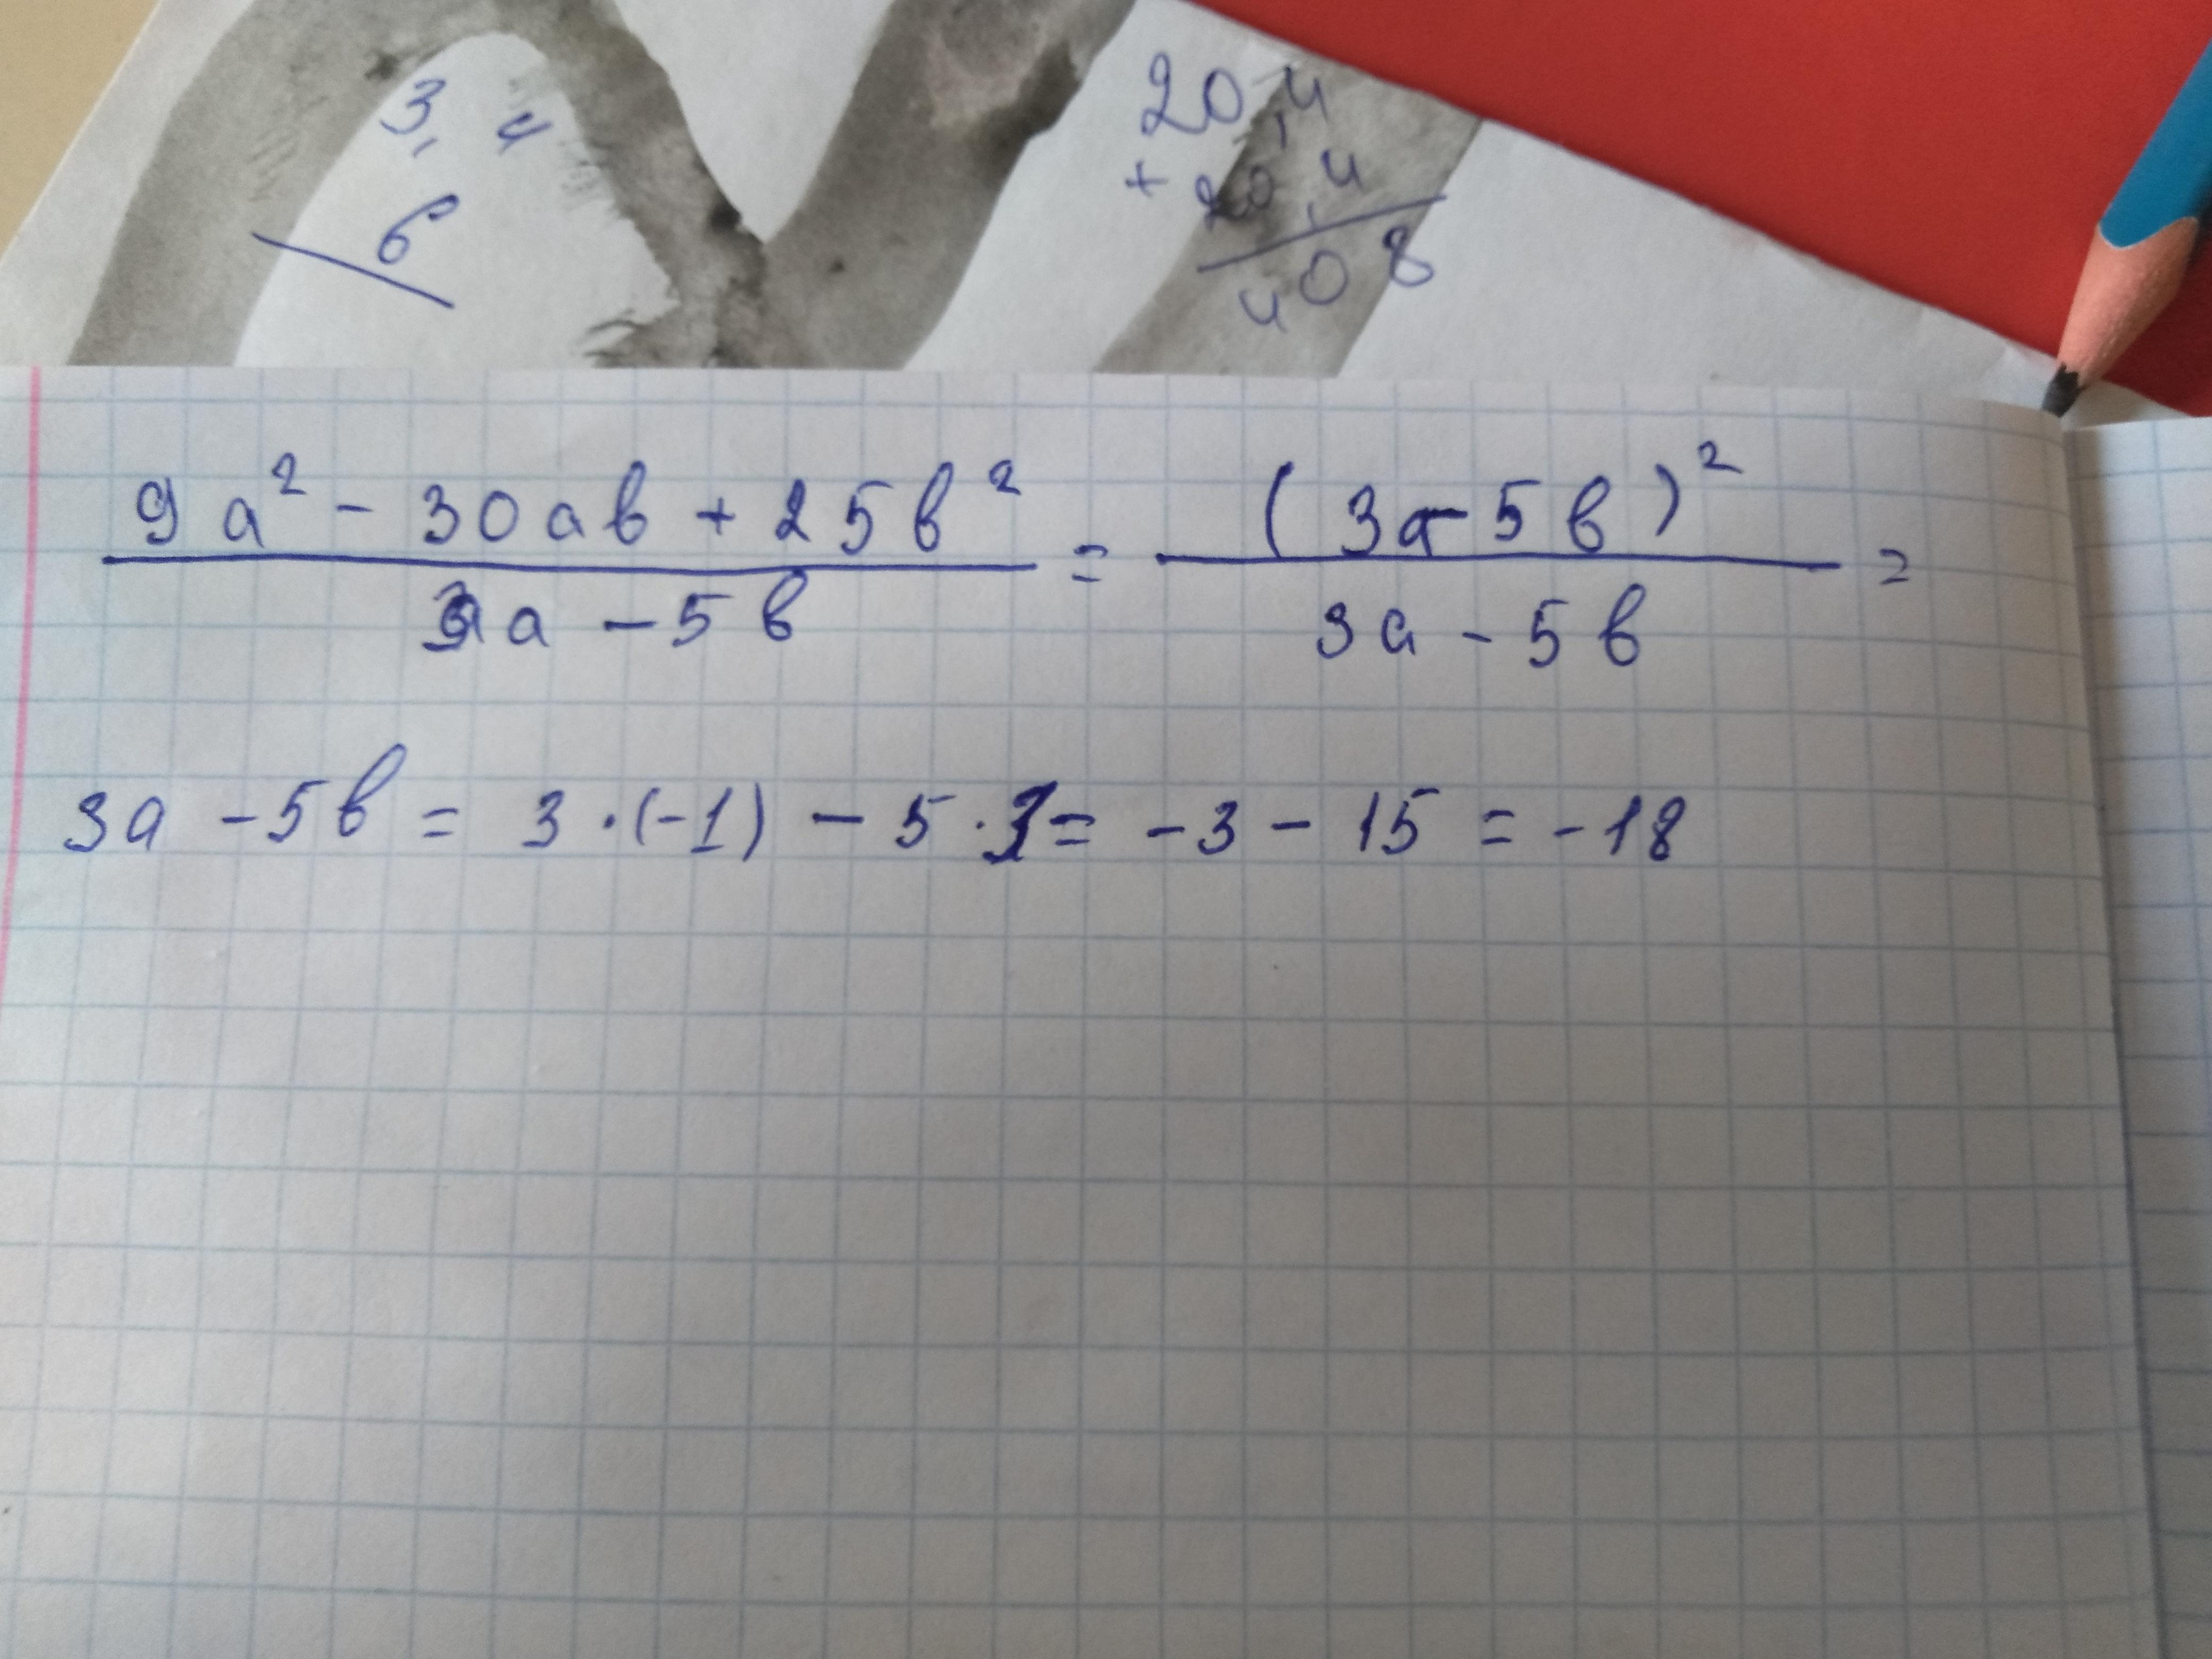 3, 4
6
20,4
+ 20,4
408
9a² - 30ab + 25b² / 3a - 5b = (3a - 5b)² / 3a - 5b =
3a - 5b = 3·(-1) - 5·3 = -3 - 15 = -18